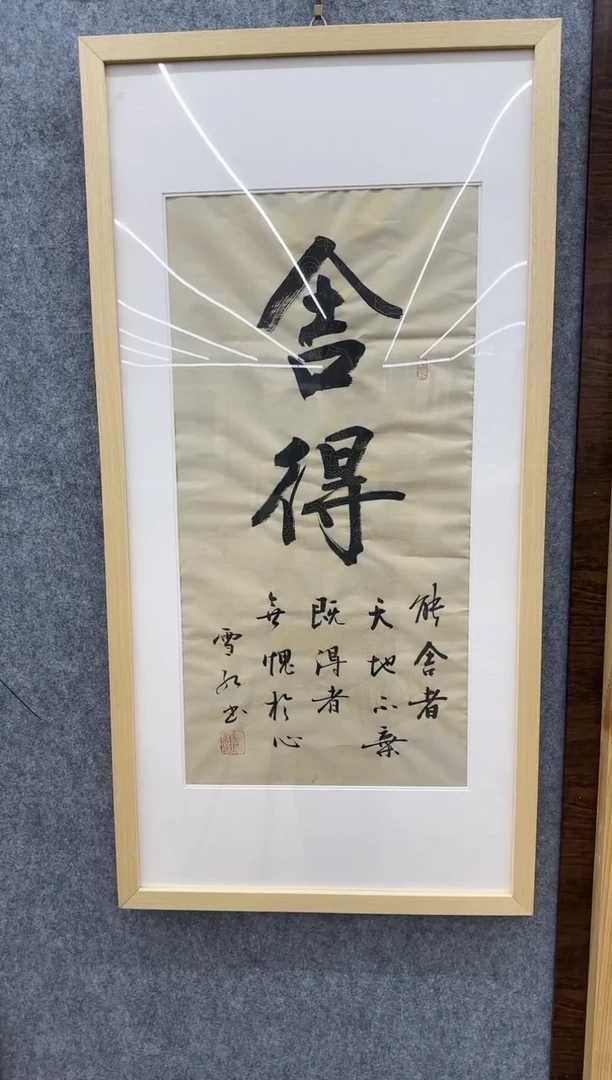 舍得
能舍者
天地不弃
既得者
無愧於心
雪红书